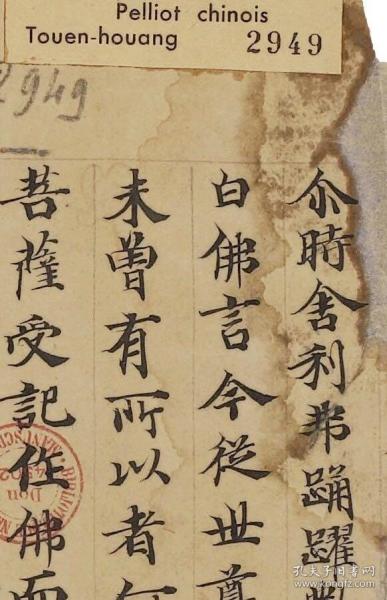 Pelliot chinois
Touen-houang 2949
2949
尒時舍利弗踊躍
白佛言今從世尊
未曾有所以者
菩薩受記作佛而
Don
孔夫子旧书网